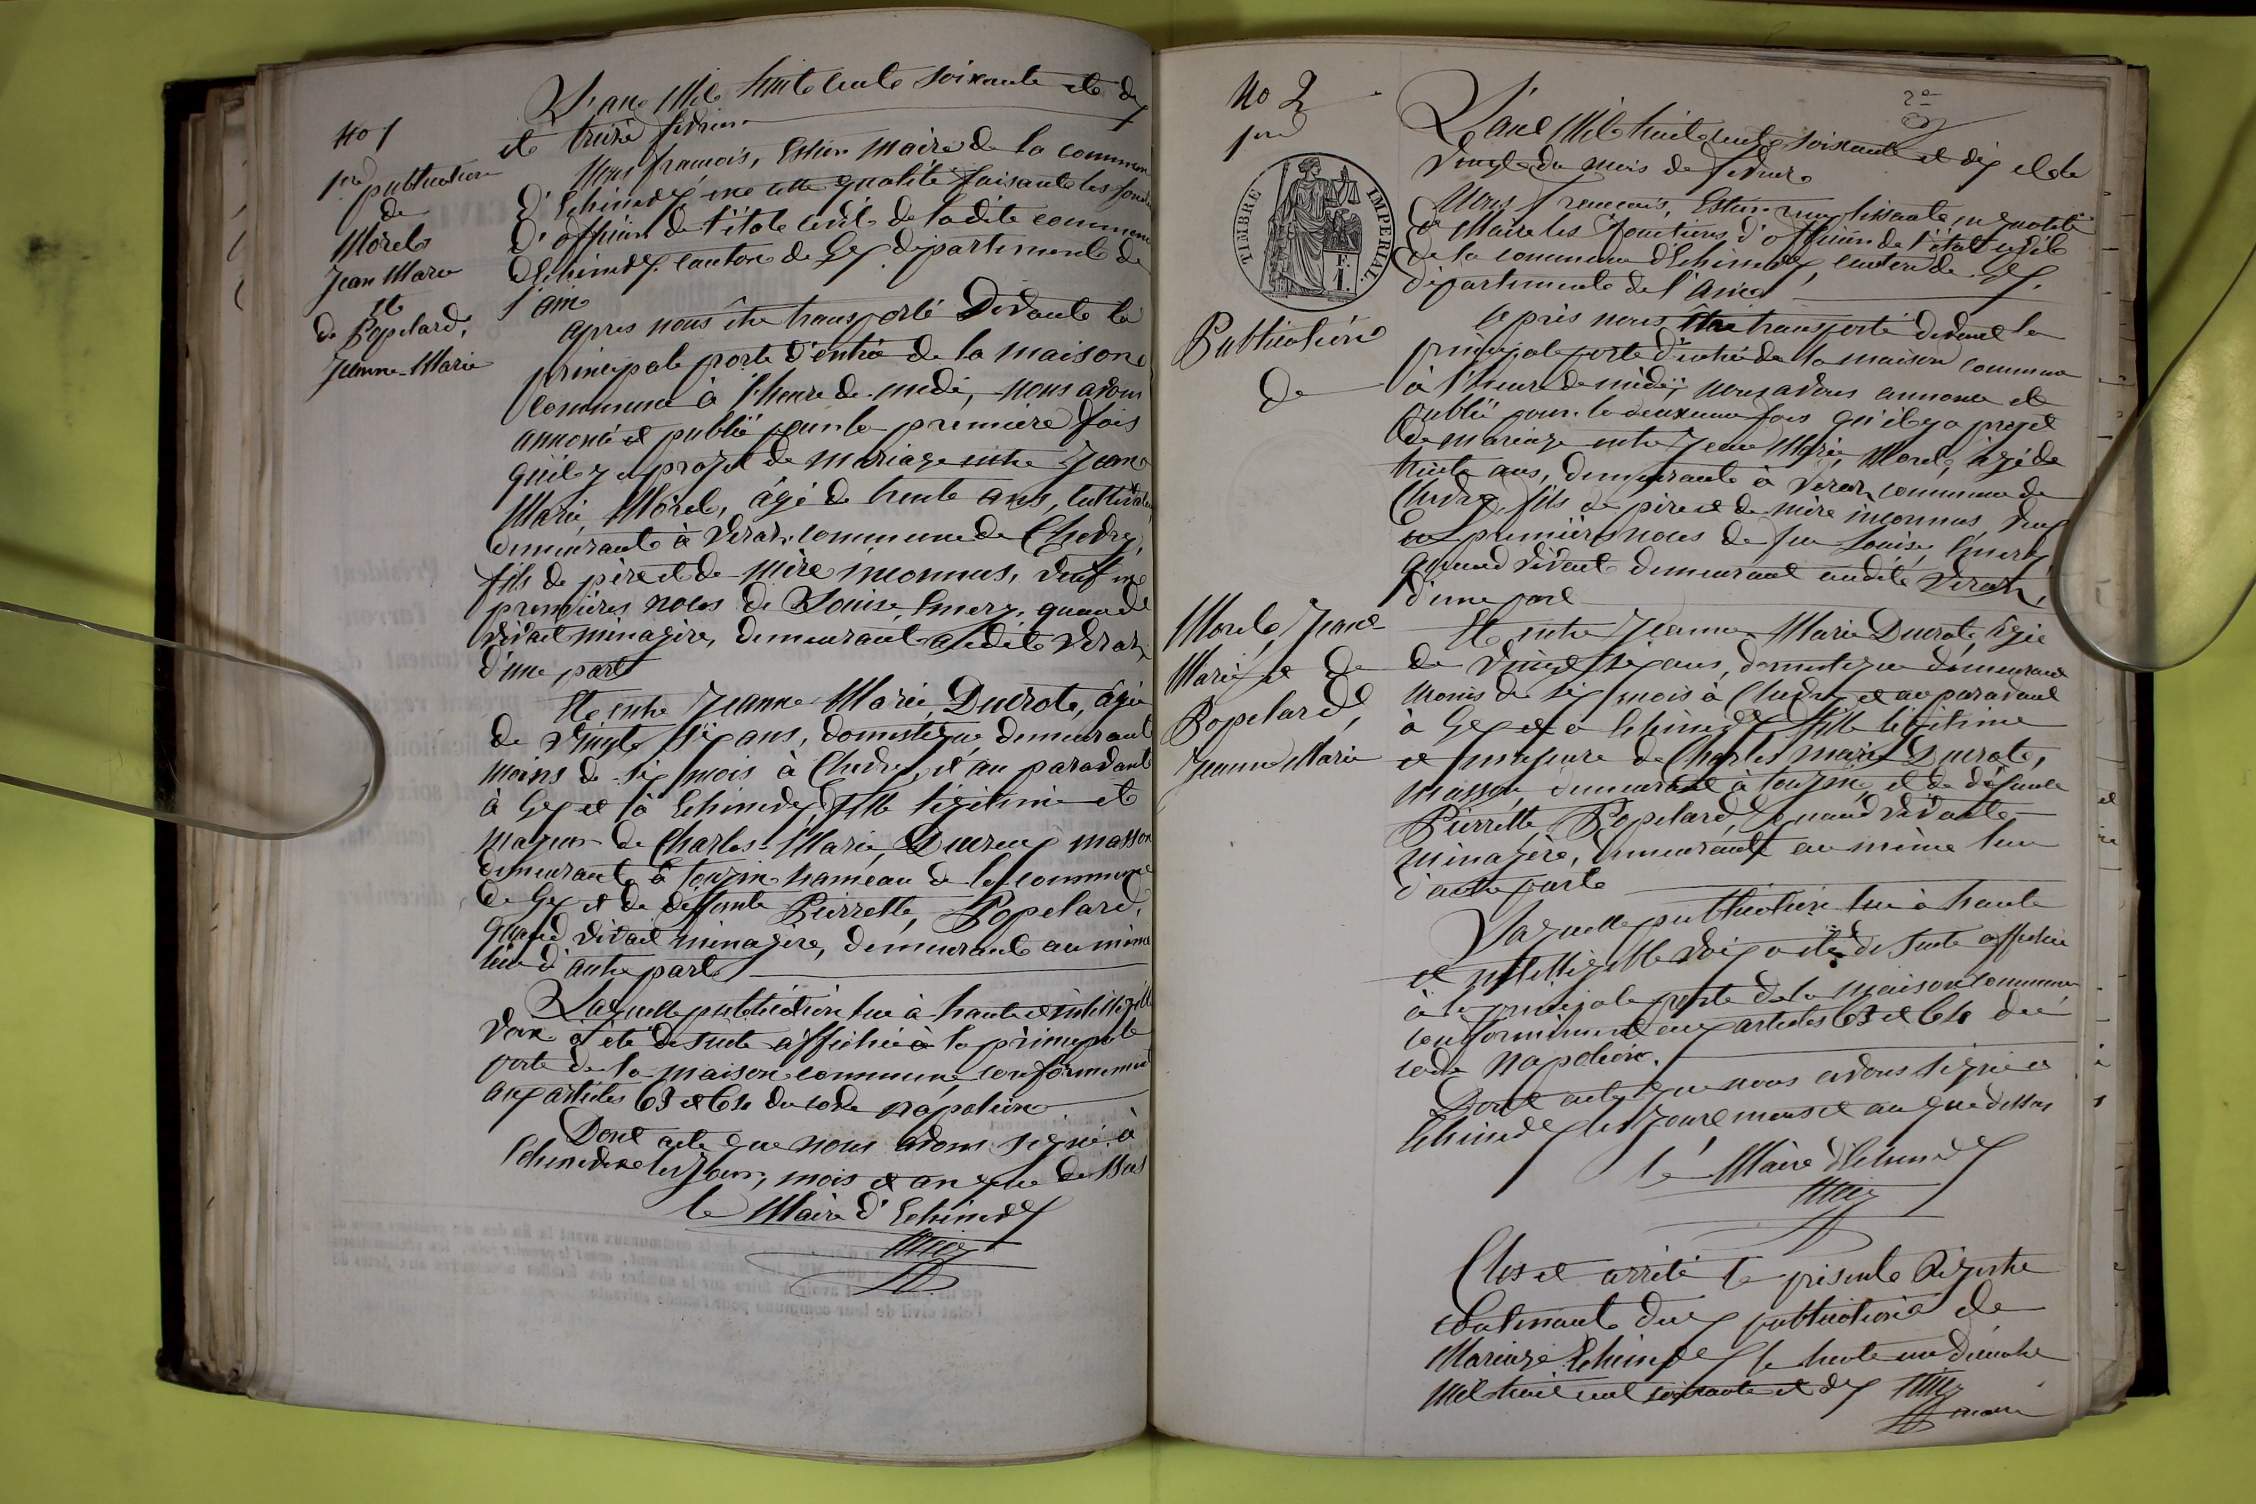 No 1
1re publication
de
Morel
Jean Marie
et
de Popelard,
Jeanne-Marie
L'an Mil huit cent soixante et dix
et treize fevrier
Nous francois, Estier maire de la commune
d'Echenevex en cette qualité faisant les fonct
d'officier de l'état civil de ladite commune
d'Echenevex, canton de Gex département de
l'ain
apres nous être transporté Devant la
principale porte d'entrée de la maison
commune à l'heure de midi, nous avons
annoncé et publié pour la premiere fois
qu'il y a projet de mariage entre Jean
Marie, Morel, âgé de trente ans, cultivateur
demeurant à Veraz, commune de Chevry,
fils de père et de mère inconnus, veuf en
premières noces de Louise, Emery, quand
vivait ménagère, demeurant audit Veraz,
d'une part
Et entre Jeanne Marie, Ducrot, âgée
de vingt six ans, domestique demeurant
moins de six mois à Chevry, et au paravant
à Gex et à Echenevex, fille légitime et
majeure de Charles-Marie, Ducrux masson
demeurant à tougin hameau de la commune
de Gex et de deffunte Pierrette, Popelard,
quand vivait ménagère, demeurant au même
lieu d'autre part
Laquelle publication lue à haute et intelligible
voix a été de suite affichée à la principale
porte de la maison commune, conformement
aux articles 63 et 64 du code napoléon
Dont acte que nous avons signé à
Echenevex les jour, mois et an que dessus
le Maire d'Echenevex
No 2
1re
TIMBRE IMPERIAL
Publication
de
Morel, Jean
Marie et de
Popelard,
Jeanne Marie
2e
L'an Mil huit cent soixante et dix et le
vingt du mois de fevrier
Nous francois, Estier remplissant en qualité
de Maire les fonctions d'officier de l'état civil
de la commune d'Echenevex, canton de Gex,
département de l'Ain
Après nous être transporté devant la
principale porte d'entrée de la maison commune
à l'heure de midi, nous avons annoncé et
publié pour la deuxième fois qu'il y a projet
de mariage entre Jean Marie, Morel, âgé de
trente ans, demeurant à Veraz commune de
Chevry, fils de père et de mère inconnus, veuf
en premières noces de feu Louise, Emery,
quand vivait demeurant audit Veraz,
d'une part
Et entre Jeanne Marie Ducrot, âgée
de vingt six ans, domestique demeurant
moins de six mois à Chevry et au paravant
à Gex et à Echenevex, fille légitime
et majeure de Charles marie Ducrot,
masson, demeurant à tougin, et de défunte
Pierrette Popelard, quand vivait
ménagère, demeurant au même lieu
d'autre part
Laquelle publication lue à haute
et intelligible voix a été de suite affichée
à la principale porte de la maison commune
conformément aux articles 63 et 64 du
code napoléon.
Dont acte que nous avons signé à
Echenevex les jour mois et an que dessus
le Maire d'Echenevex
Clos et arrêté le présent Régistre
contenant deux publications de
Mariage Echenevex le trente un décembre
mil huit cent soixante et dix
maire